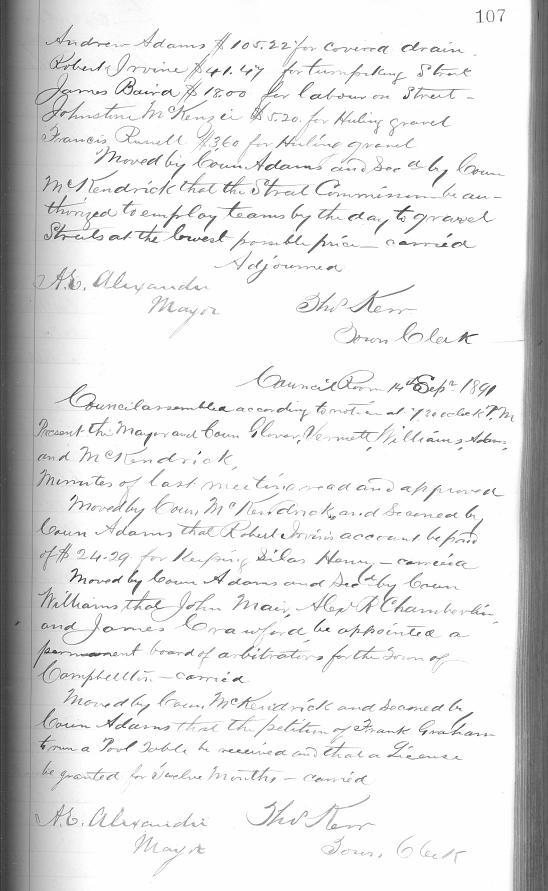 107
Andrew Adams $105.22 for covered drain.
Robert Irvine $41.47 for turnpiking Street
James Baird $18.00 for labour on Street -
Johnston McKenzie $5.20 for Huling gravel
Francis Russell $3.60 for Huling gravel
Moved by Coun Adams and Secd by Coun
McKendrick that the Street Commissioner be au-
thorized to employ teams by the day to gravel
Streets at the lowest possible price - carried
Adjourned
A.E. Alexander
Mayor
Thos Kerr
Town Clerk
Council Room 14th Sepr 1891
Council assembled according to notice at 7.30 oclock P.M
Present the Mayor and Coun Glover, Vermett, Williams, Adams,
and McKendrick,
Minutes of last meeting read and approved
Moved by Coun McKendrick and Seconed by
Coun Adams that Robert Irvins account be paid
of $24.29 for Keeping Silas Henry - carried
Moved by Coun Adams and Secd by Coun
Williams that John Mair, Alex R Chamberlin,
and James Crawford be appointed a
permanent board of arbitrators for the Town of
Campbellton - carried
Moved by Coun McKendrick and Seconed by
Coun Adams that the petition of Frank Graham
to run a Pool Table be received and that a License
be granted for Twelve Months - carried
A.E. Alexander
Mayor
Thos Kerr
Town Clerk